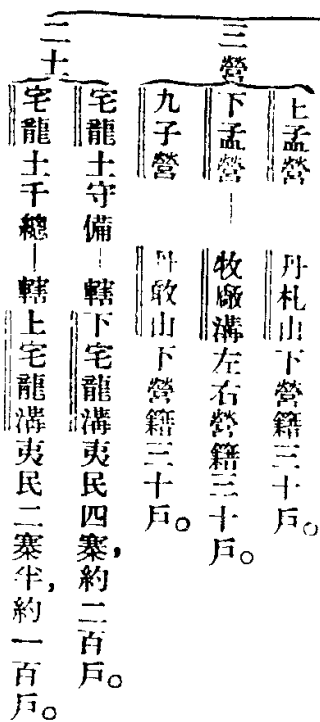 三營
上孟營　丹札山下營籍三十戶。
下孟營—牧廠溝左右營籍三十戶。
九子營　丹敢山下營籍三十戶。
二土
宅龍土守備—轄下宅龍溝夷民四寨，約二百戶。
宅龍土千總—轄上宅龍溝夷民二寨半，約一百戶。